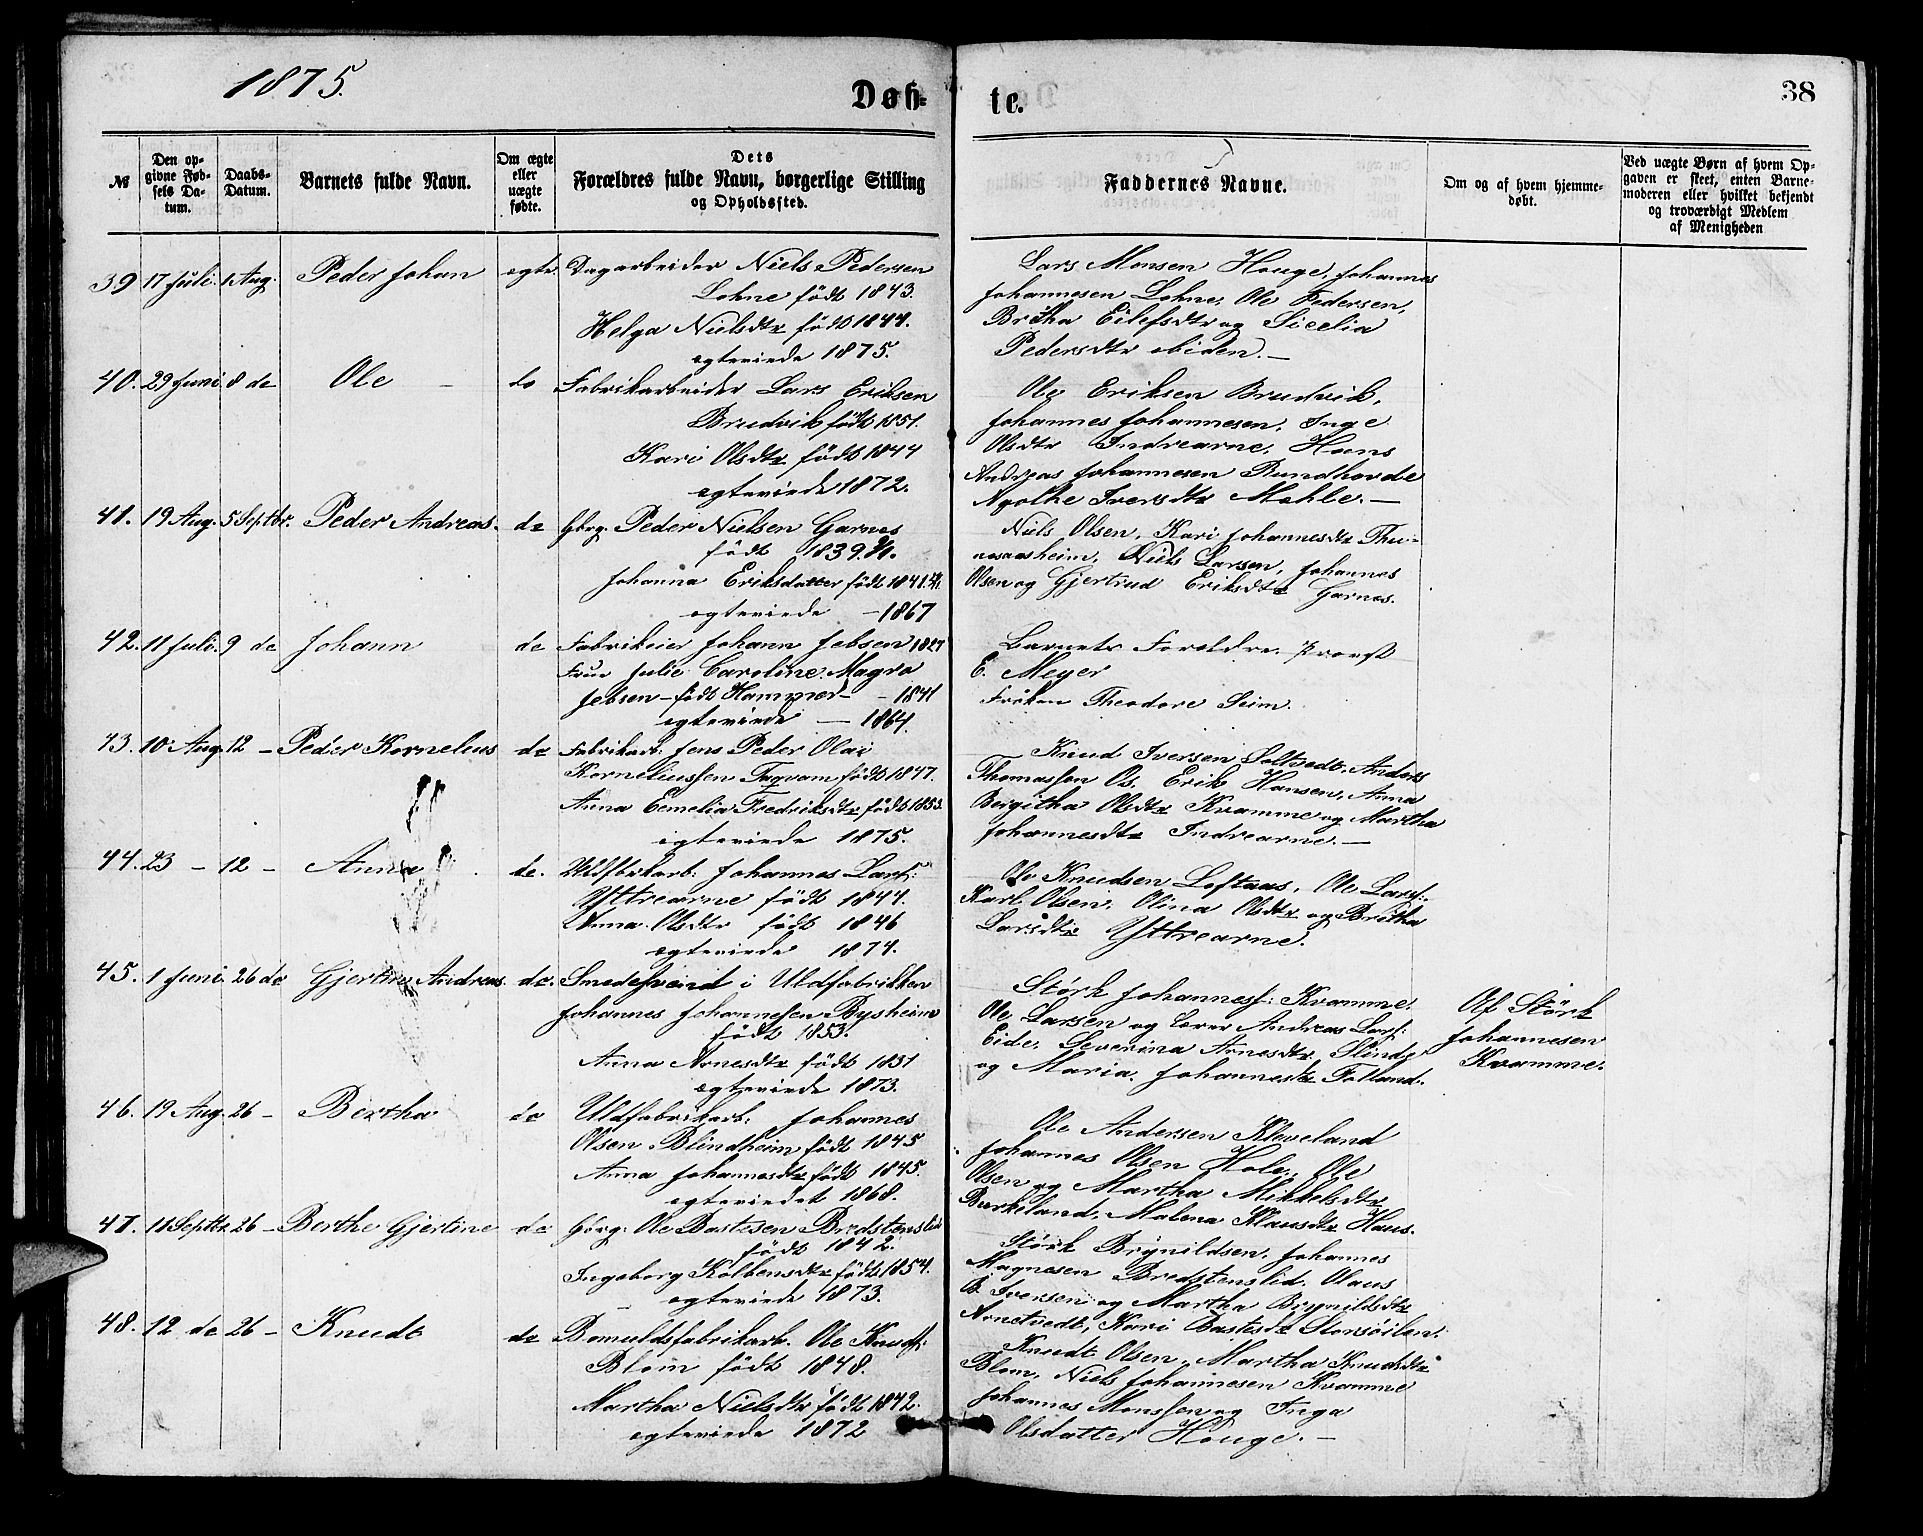 1875.
Døb-
te.
38
№
Den op-
givne Fød-
sels Da-
tum.
Daabs-
Datum.
Barnets fulde Navn.
Om ægte
eller
uægte
fødte.
Dets
Forældres fulde Navn, borgerlige Stilling
og Opholdssted.
Faddernes Navne.
Om og af hvem hjemme-
døbt.
Ved uægte Børn af hvem Op-
gaven er skeet, enten Barne-
moderen eller hvilket bekjendt
og troværdigt Medlem
af Menigheden
39 17 Juli. 1 Aug. Peder Johan ægte. Dagarbeider Niels Pedersen
Lohne födt 1843.
Helga Nielsdtr födt 1844.
egteviede 1875.
Lars Monsen Houge, Johannes
Johannesen Lohne, Ole Pedersen,
Britha Eilefsdtr og Sicelia
Pedersdtr ibiden.—
40. 29 Juni 8 do Ole – do Fabrikarbeider Lars Eriksen
Brudvik födt 1851.
Kari Olsdtr födt 1844
egteviede 1872.
Ole Eriksen Brudvik,
Johannes Johannesen, Inge
Olsdtr Indrearne, Hans
Andreas Johannesen Rundhovde
Agothe Iversdtr Mohle.—
41. 19 Aug. 5 Septbr. Peder Andreas. do Gbrg. Peder Nielsen Garnes
födt 1839.
Johanna Eriksdatter födt 1841
egteviede – 1867
Niels Olsen, Kari Johannesdtr Thu-
nesaasheim, Niels Larsen, Johannes
Olsen og Gjertrud Eriksdtr Garnes.
42. 11 Juli. 9 do Johann do Fabrikeier Johann Jebsen 1827
Frue Julie Caroline Magra
Jebsen – födt Hammer – 1841
egteviede – 1864.
Barnets Foreldre. Provst
E. Meyer
Fröken Theodore Seim.
43. 10 Aug. 12 – Peder Kornelius do Fabrikarb: Jens Peder Olai
Korneliussen Taqvam födt 1847.
Anna Eemelia Fredriksdtr födt 1853
egteviede 1875.
Knud Iversen Soltvedt, Anders
Thomassen Os, Erik Hansen, Anna
Bergitha Olsdtr Kvamme og Martha
Johannesdtr Indrearne.—
44. 23 – 12 – Anna do. Uldfbrkarb: Johannes Lars:
Yttrearne födt 1844.
Anna Olsdtr födt 1846
egteviede 1874.
Ole Knudsen Loftaas, Ole Lars:,
Karl Olsen, Olina Olsdtr og Britha
Larsdtr Yttrearne.
45. 1 Juni. 26 do Gjertin Andreas. do. Smedesvend i Uldfabrikken
Johannes Johannesen Bysheim
födt 1853.
Anna Arnesdtr födt 1851
egteviede 1873.
Störk Johanness: Kvamme,
Ole Larsen og Lærer Andreas Lars:
Eide, Severina Arnesdtr Slinde
og Maria Johannesdtr Folland.
Af Störk
Johannesen
Kvamme.
46. 19 Aug. 26 – Bertha do Uldfabrikarb: Johannes
Olsen Blindheim födt 1845
Anna Johannesdtr födt 1845.
egteviedet 1868.
Ole Andersen Kleveland
Johannes Olsen Hole, Ole
Olsen og Martha Mikkelsdtr
Burkeland, Malena Klausdtr Haus.
47. 11 Septbr 26 – Berthe Gjertine do Gbrg: Ole Bastesen Bredstenslid
födt 1842.
Ingeborg Kolbensdtr födt 1854.
egteviede 1873.
Störk Brynildsen, Johannes
Magnesen Bredstenslid, Olaus
B. Iversen og Martha Brynildsdtr
Arnetvedt, Kari Bastesdtr Storsöilen.
48. 12 do 26 – Knudt do Bomuldsfabrikarb. Ole Knuds:
Blom födt 1848.
Martha Nielsdtr födt 1842.
egteviede 1872
Knudt Olsen, Martha Knudsdtr
Blom, Niels Johannesen Kvamme
Johannes Monssen og Inga
Olsdatter Houge.—